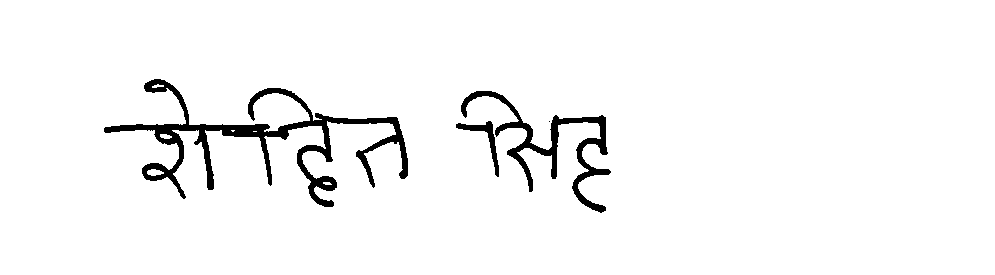 रोहित सिह